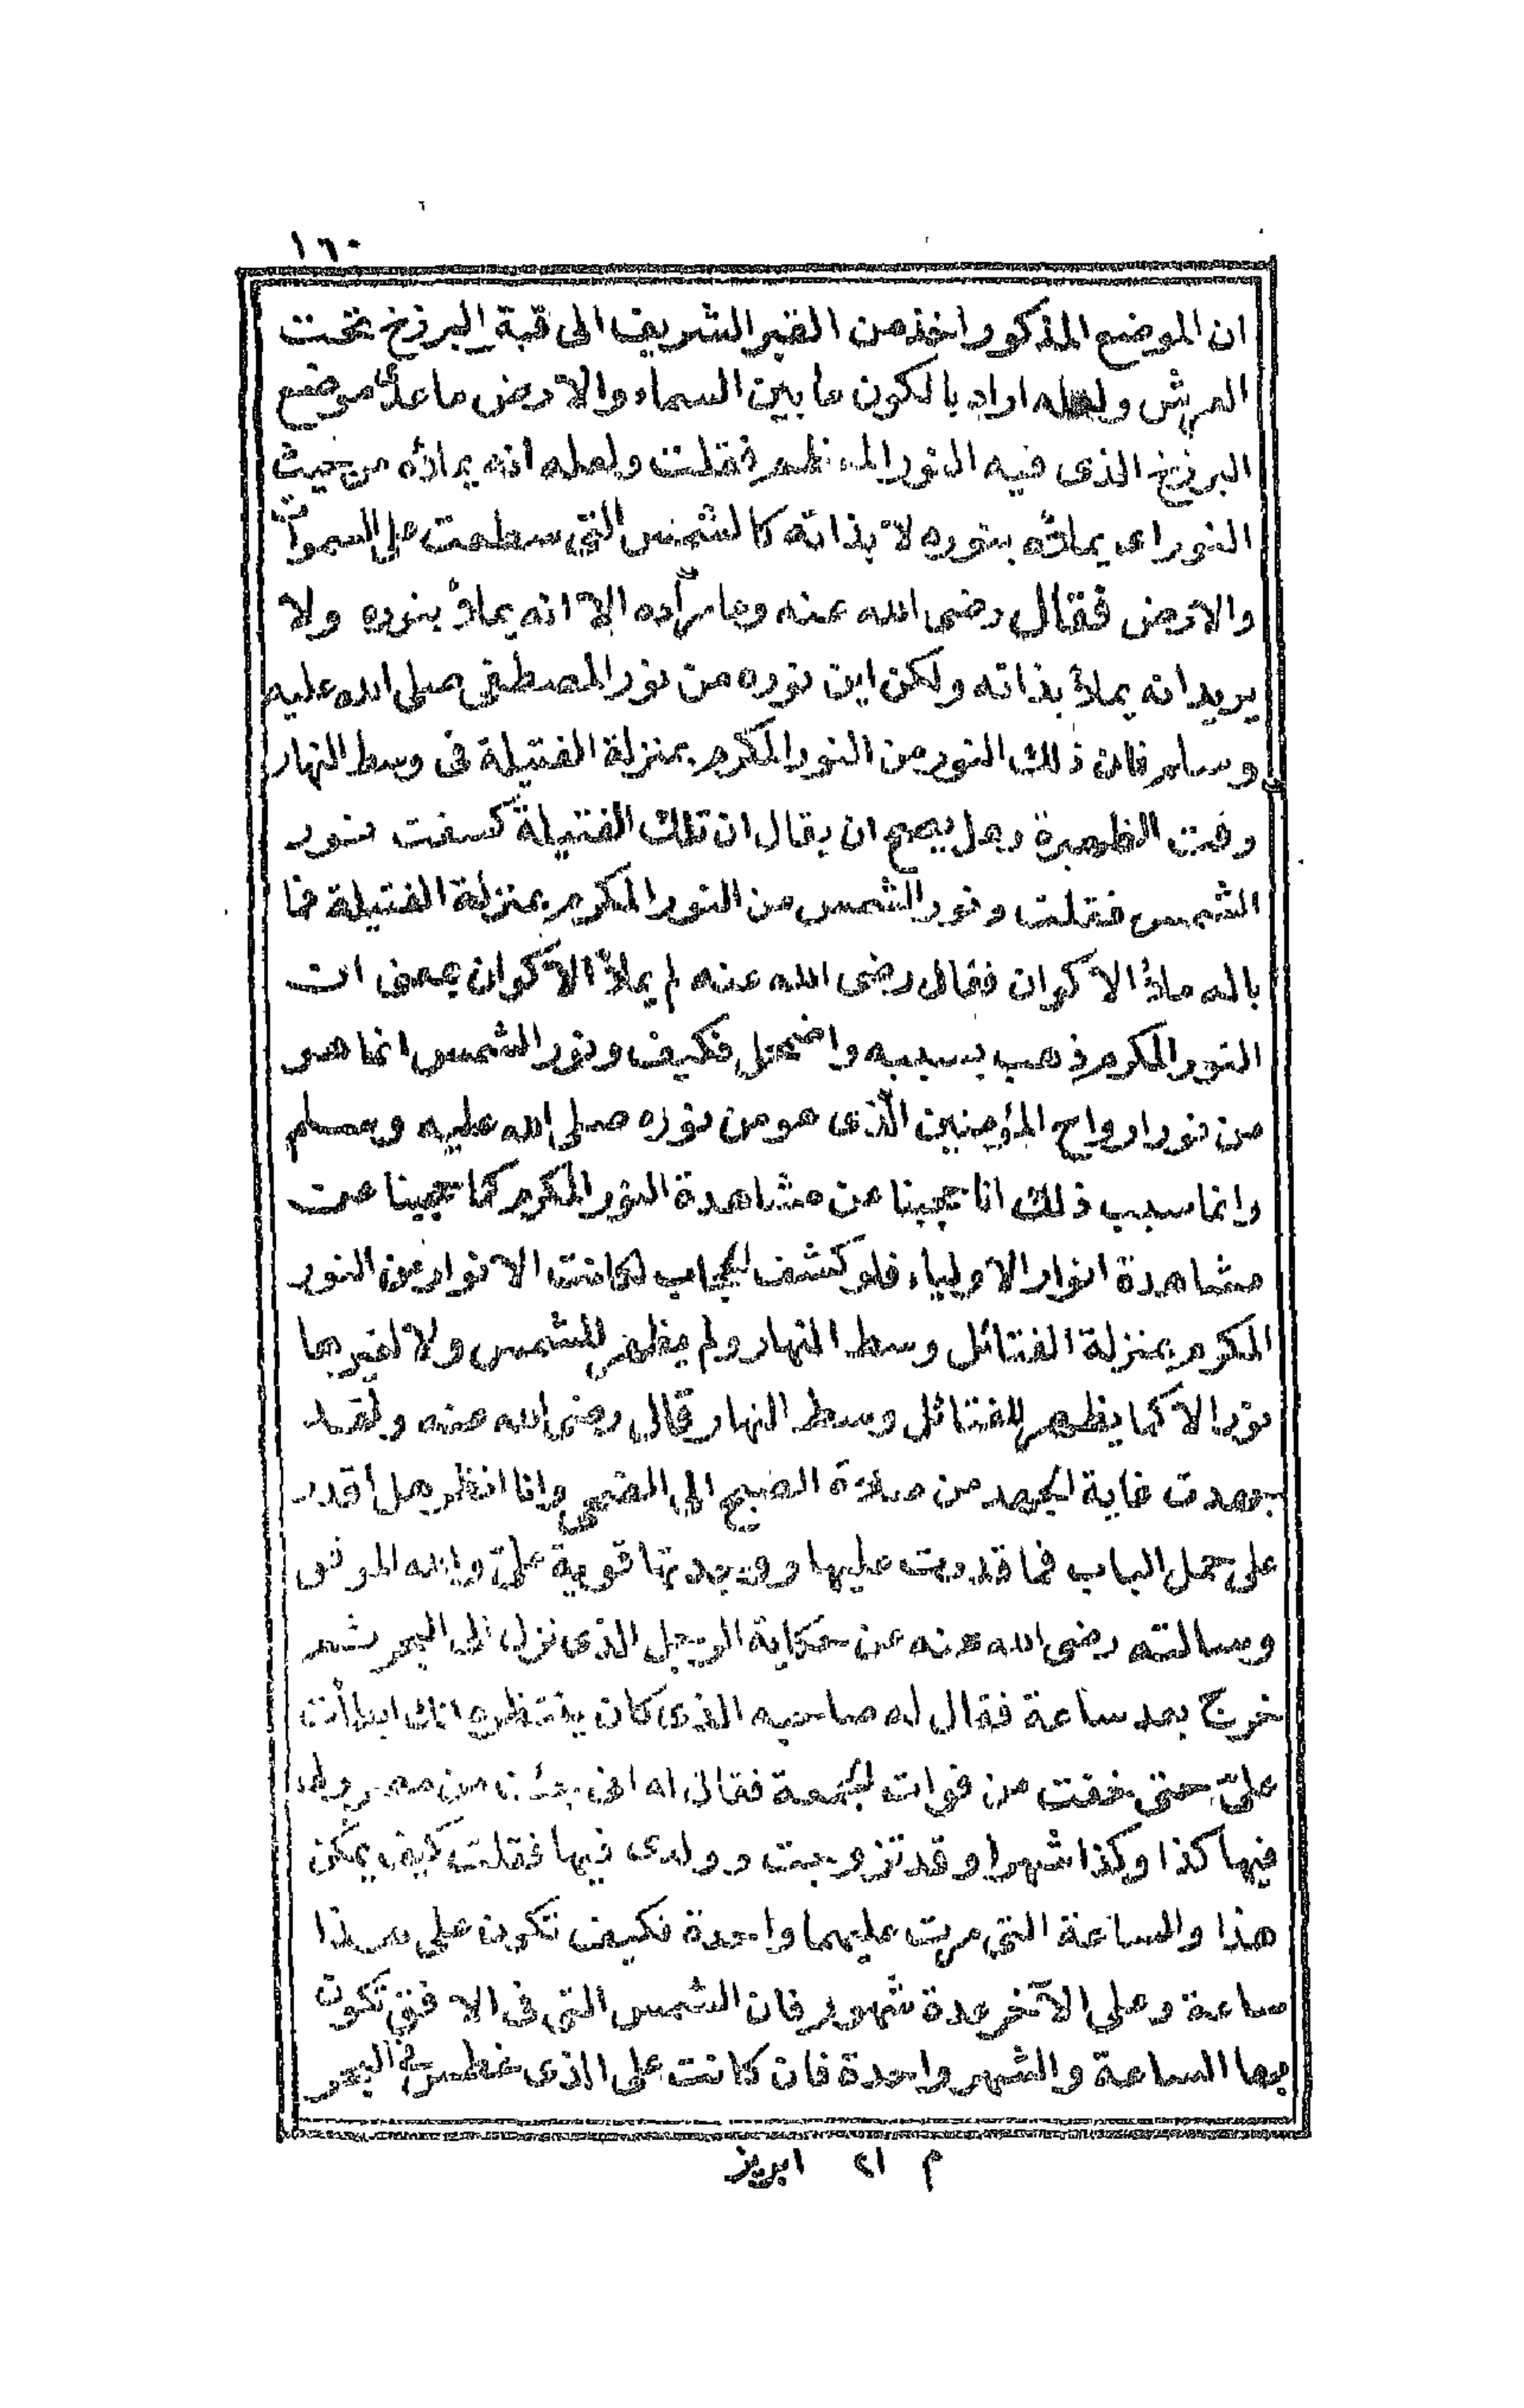 ١٦٠
ان الموضع المذكور اخذ من القبر الشريف الى قبة البرزخ تحت
العرش ولعله اراد بالكون ما بين السماء والارض ما عدا موضع
البرزخ الذى فيه النور المعظم فقلت ولعله انه يملاؤه من حيث
النور اى يملاؤه بنوره لا بذاته كالشمس التى سطعت على السموات
والارض فقال رضى الله عنه وما مراده الا انه يملاؤ بنوره ولا
يريد انه يملاؤ بذاته ولكن اين نوره من نور المصطفى صلى الله عليه
وسلم فان ذلك النور من النور المكرم بمنزلة الفتيلة فى وسط النهار
وقت الظهيرة وهل يصح ان يقال ان تلك الفتيلة كسفت نور
الشمس فقلت ونور الشمس من النور المكرم بمنزلة الفتيلة فما
باله ملاؤ الاكوان فقال رضى الله عنه لم يملاؤ الاكوان بمعنى ان
النور المكرم ذهب بسببه واضمحل فكيف ونور الشمس انما هو
من نور ارواح المؤمنين الذى هو من نوره صلى الله عليه وسلم
وانما سبب ذلك انا حجبنا عن مشاهدة النور المكرم كما حجبنا عن
مشاهدة انوار الاولياء فلو كشف الحجاب لكانت الانوار من النور
المكرم بمنزلة الفتائل وسط النهار ولم يظهر للشمس ولا لغيرها
نور الا كما يظهر للفتائل وسط النهار قال رضى الله عنه ولقد
جهدت غاية الجهد من صلاة الصبح الى الضحى وانا انظر هل أقدر
على حمل الباب فما قدرت عليها ووجدتها قوية علىّ والله الموفق
وسالته رضى الله عنه عن حكاية الرجل الذى نزل الى البحر ثم
خرج بعد ساعة فقال له صاحبه الذى كان ينتظره انك ابطأت
علىّ حتى خفت من فوات الجمعة فقال له انى جئت من مصر ولى
فيها كذا وكذا شهرا وقد تزوجت وولدى فيها فقلت كيف يمكن
هذا والساعة التى مرت عليهما واحدة فكيف تكون على هذا
ساعة وعلى الآخر عدة شهور فان الشمس التى فى الافق تكون
بها الساعة والشهر واحدة فان كانت على الذى غطس فى البحر
م ٢١ ابريز